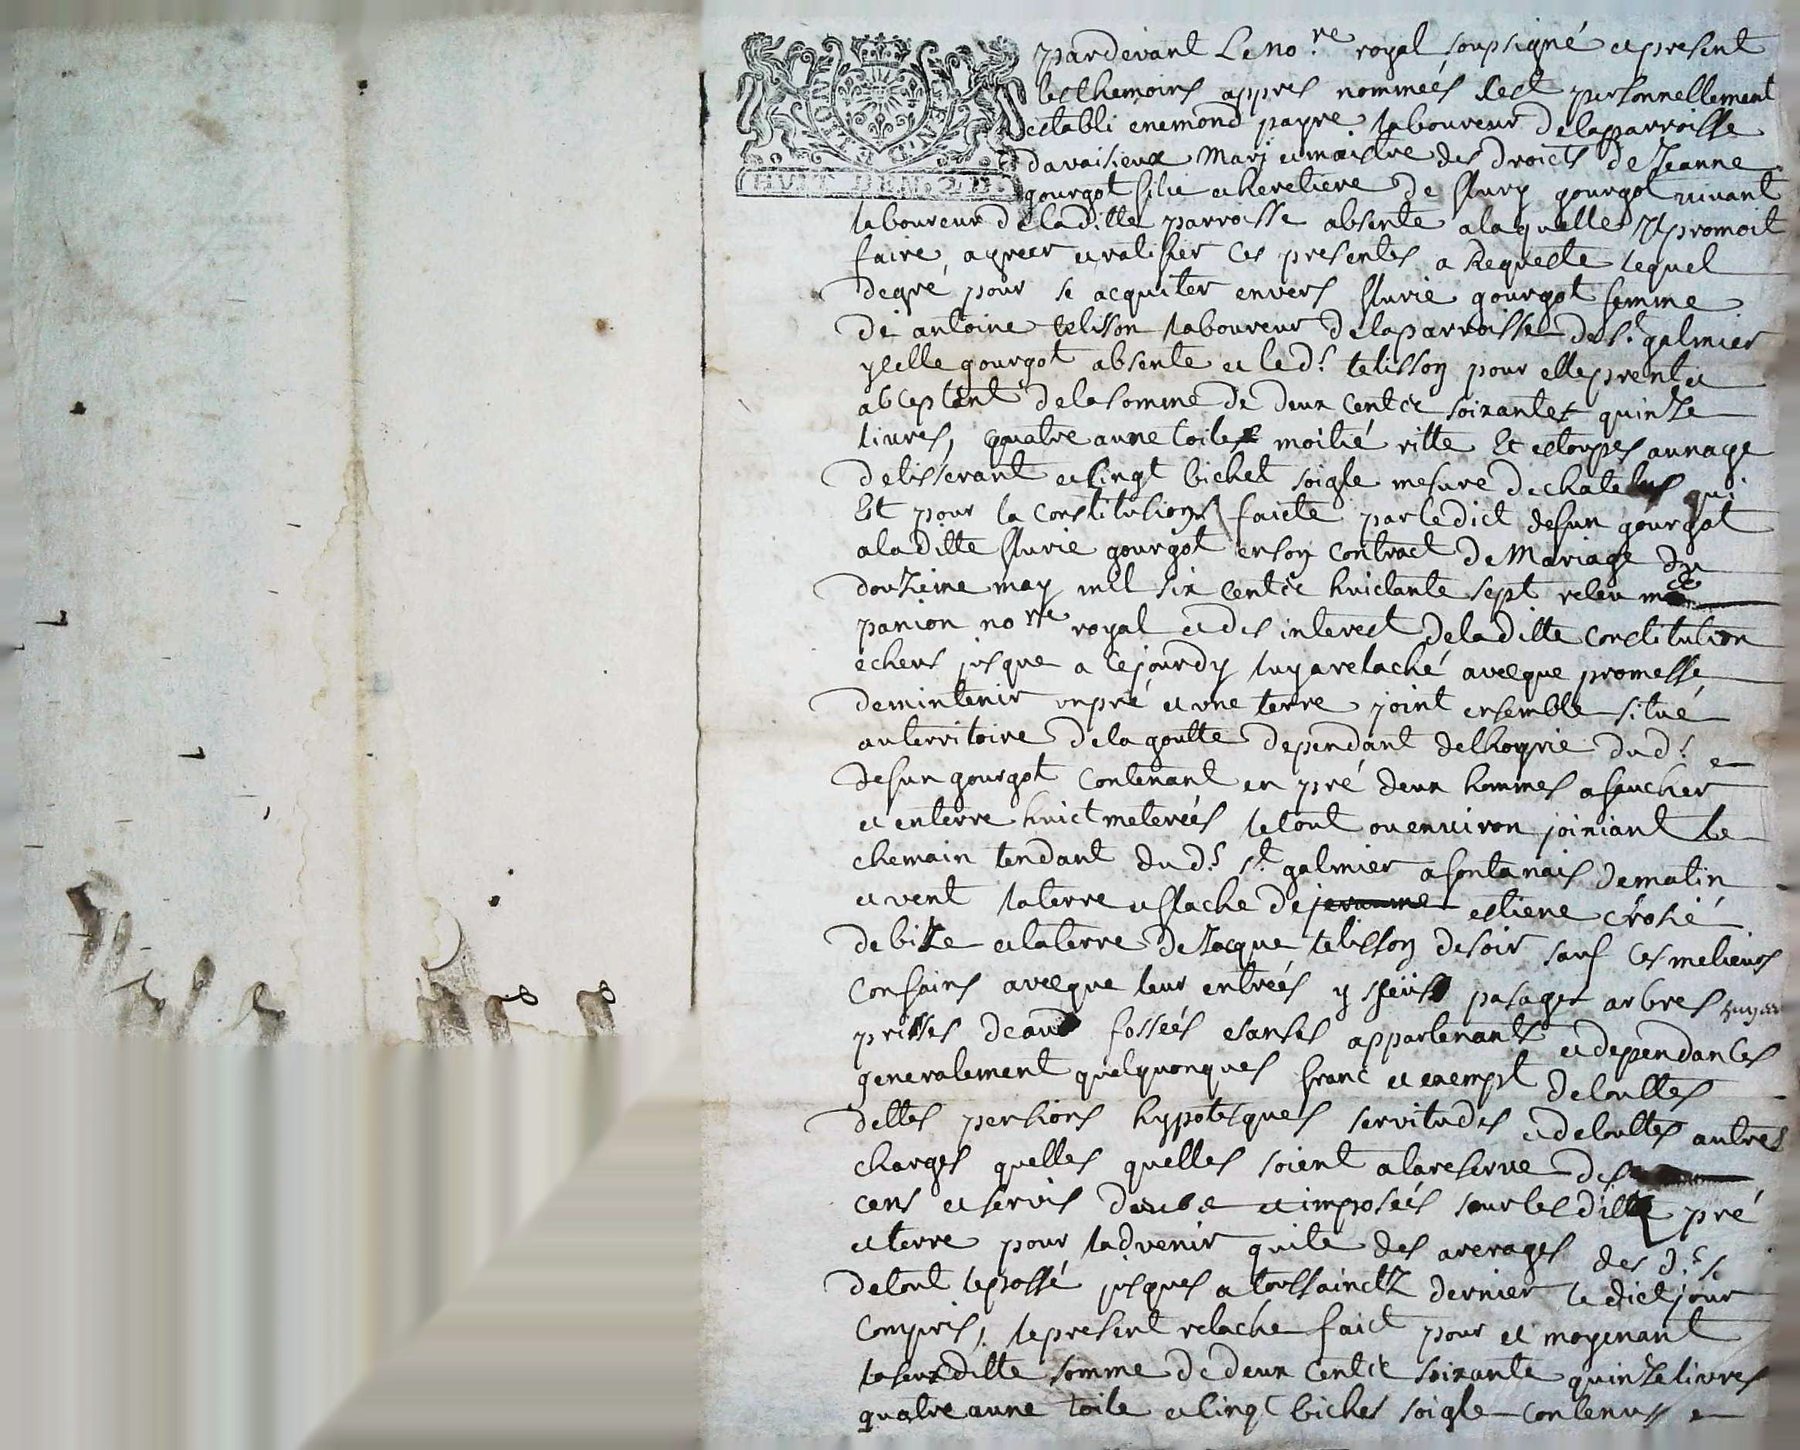 pardevant Le no.re royal soupsigné et present
les themoins appres nommeés s'est personnellement
establi enemond payre laboureur delaparroisse
davaisieux Mary et maistre des droicts de Jeanne
HUIT DEN.
gourgot fille et heretiere de flury gourgot vivant
laboureur deladitte parroisse absente alaquelle Il promoit
faire agreer et ratifier ces presentes a Requeste lequel
degré pour se acquiter envers flurie gourgot femme
de antoine telison laboureur delaparroisse de st galmier
ycelle gourgot absente et led.t telisson pour elle prent et
abceptant delasomme de deux centz soixante et quinze
livres, quatre aune toille moitié ritte Et estoupes aunage
detisserant et cinqt bichet soigle mesure de chatelus qui
Et pour la constitution faicte par ledict defun gourgot
aladitte flurie gourgot en son contract de Mariage du
douzeine may mil six centz huictante sept receu me
panion no.re royal et des interest deladitte constitution
echeus jusque a cejourdy luy arelaché avecque promesse
demintenir un pré et une terre joint ensemble situé
auterritoire delagoutte dependant delhoyrie dud.t
defun gourgot contenant en pré deux hommes afaucher
et enterre huict meterées letout ouenviron joiniant le
chemain tendant dud.t st galmier afontanais dematin
et vent laterre et flache de estiene crosié
debize et laterre deJacque telisson desoir sauf ces melieurs
confains avecque leur entrées y ssëüs pasages arbres
prisses deaud fosseés esanses appartenants et dependances
generalement quelquonques franc et exempt detouttes
dettes pensions hypotesques servitudes et detouttes autres
charges quelles quelles soient alareserve des
cens et servis deube et imposeés sur les ditte pré
et terre pour ladvenir quite des arerages des d.ts
detout lepassé jusques a toussainctz dernier le dict jour
compris, lepresent relache faict pour et moyenant
lasusditte somme de deux centz soixante quinze livres
quatre aune toile et cinqt biches soigle contenus e